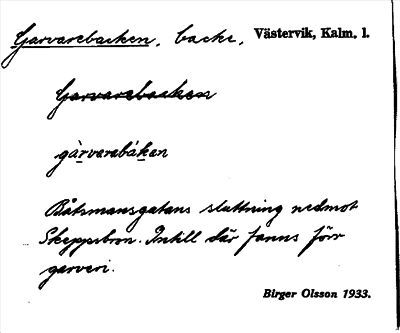 Garvarebacken, backe, Västervik, Kalm. l.
Garvarebacken
gàrvarebàken
Båtsmansgatans sluttning nedmot
Skeppsbron. Intill där fanns förr
garveri.
Birger Olsson 1933.